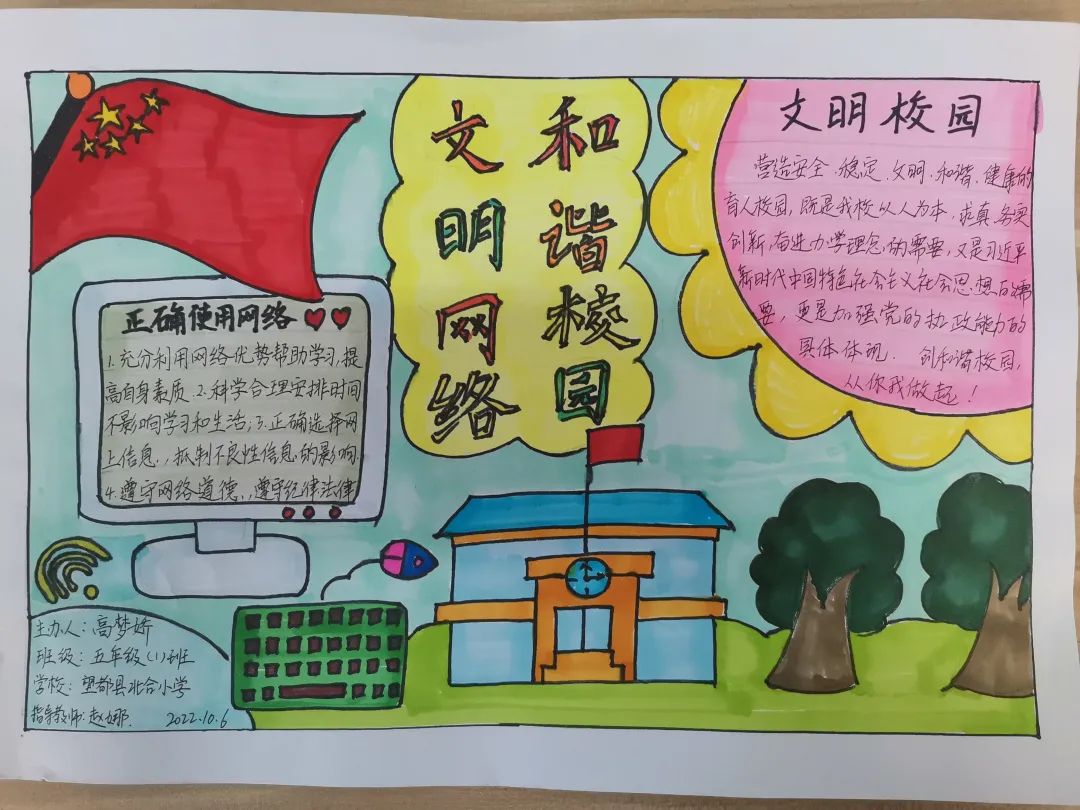 文明网络
和谐校园
正确使用网络
1.充分利用网络优势帮助学习,提
高自身素质.2.科学合理安排时间
不影响学习和生活;3.正确选择网
上信息,,抵制不良性信息的影响.
4.遵守网络道德,,遵守纪律法律
文明校园
营造安全.稳定.文明.和谐.健康的
育人校园,既是我校以人为本.求真.务实
创新,奋进办学理念的需要,又是习近平
新时代中国特色社会主义社会思想的需
要,更是加强党的执政能力的
具体体现. 创和谐校园,
从你我做起!
主办人:高梦娇
班级:五年级(1)班
学校:望都县北合小学
指导教师:赵娜. 2022.10.6